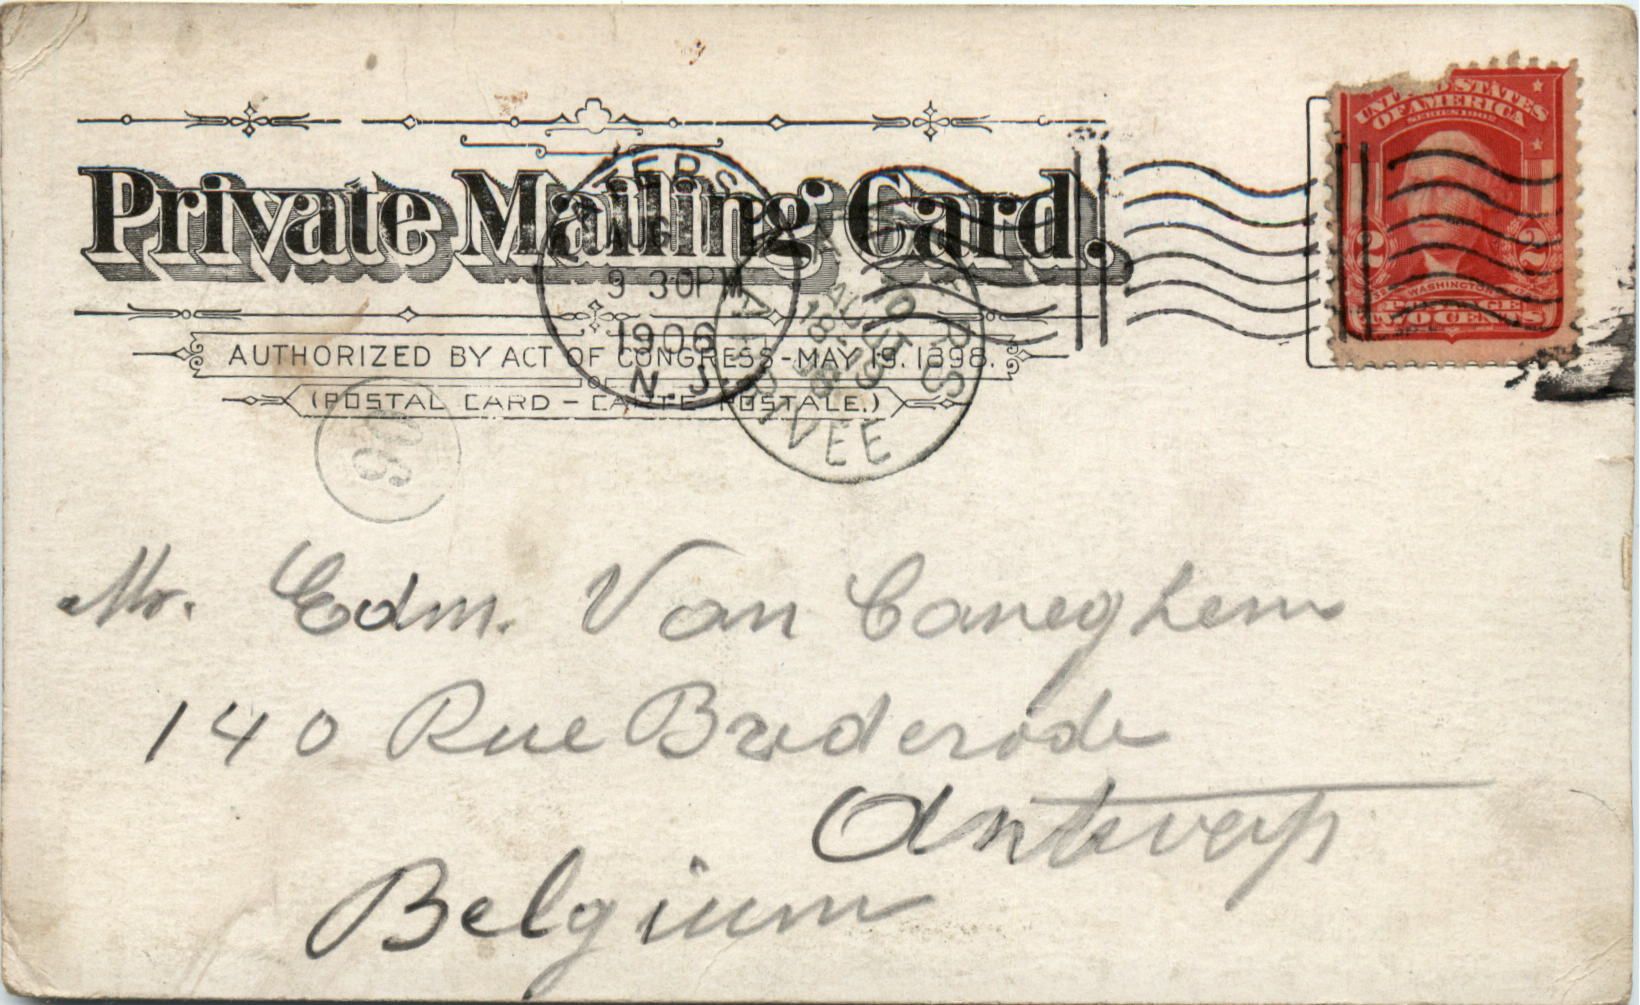 Private Mailing Card.
AUTHORIZED BY ACT OF CONGRESS-MAY 19. 1898.
(POSTAL CARD - CARTE POSTALE.)
AUG
9 30PM
1906
N.J.
ANVERS
ARRIVEE
UNITED STATES
OF AMERICA
SERIES 1902
2 2
WASHINGTON
POSTAGE
TWO CENTS
Mr. Edm. Van Caneghem
140 Rue Brederode
Antwerp
Belgium